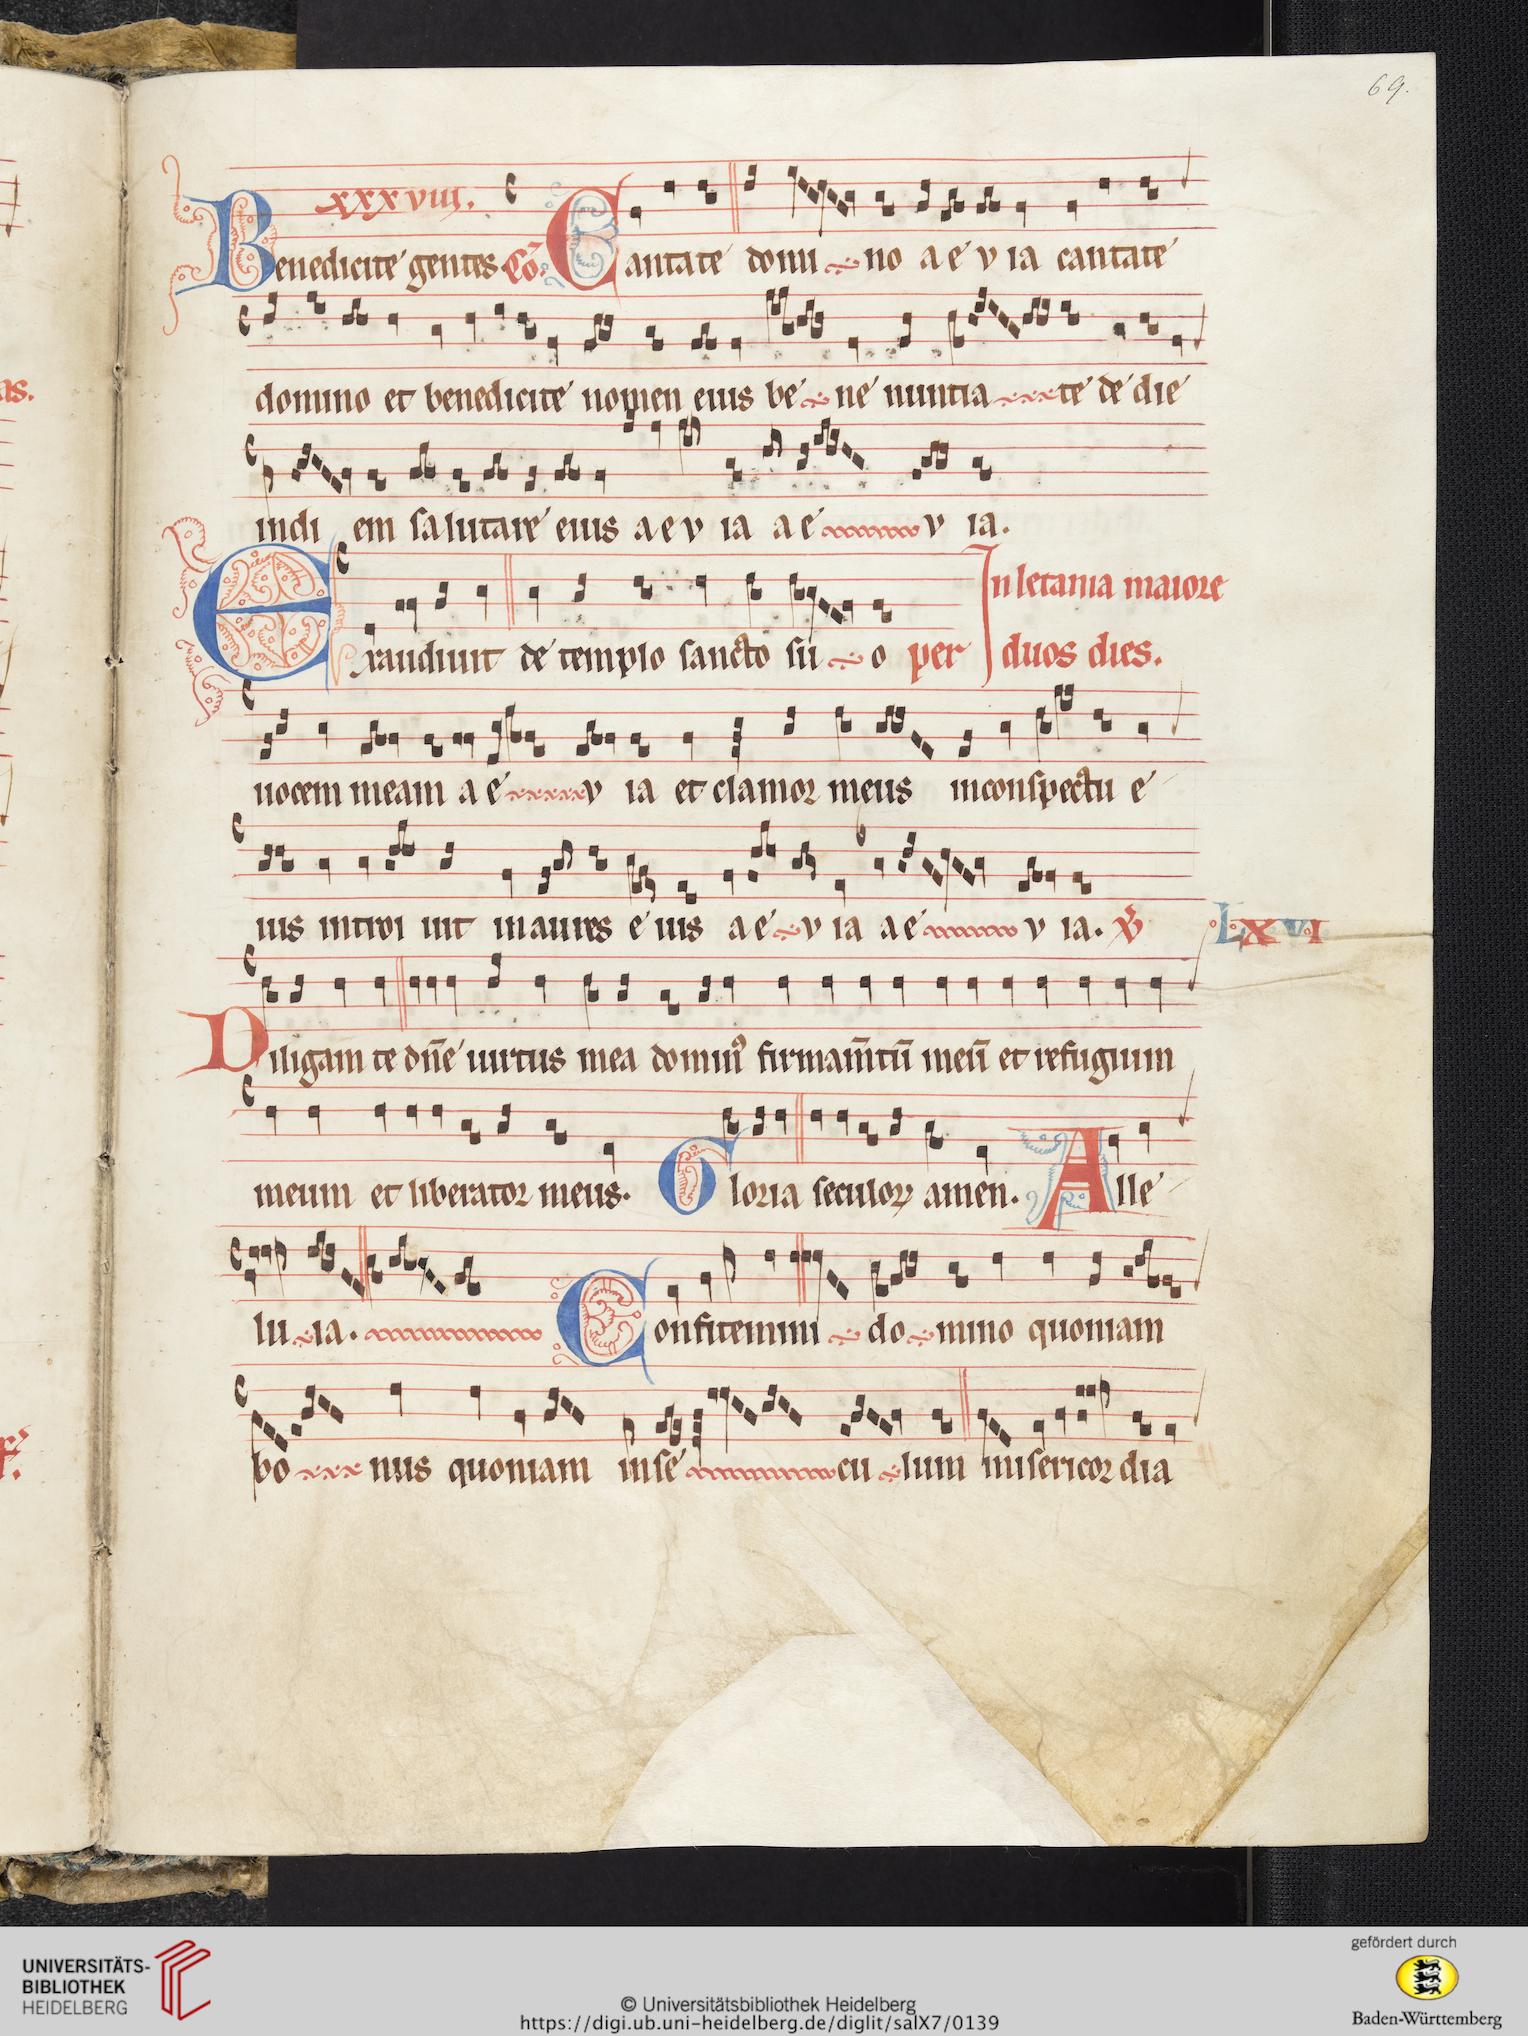 69.
xxxviii.
Benedicite gentes Cō. Cantate domino aevia cantate
domino et benedicite nomen eius bene nuntiate de die
indi em salutare eius aevia aevia.
In letania maiore
Exaudiuit de templo sancto suo per duos dies.
uocem meam aevia et clamor meus inconspectu e
ius introi uit in aures eius aevia aevia. LXVI
Diligam te dn̄e uirtus mea dominꝰ firmam̄tū meū et refugium
meum et liberator meus. Gloria seculoꝝ amen. Alle
luia. Confitemini domino quoniam
bonus quoniam inse culum misericordia
as.
UNIVERSITÄTS-
BIBLIOTHEK
HEIDELBERG
© Universitätsbibliothek Heidelberg
https://digi.ub.uni-heidelberg.de/diglit/salX7/0139
gefördert durch
Baden-Württemberg